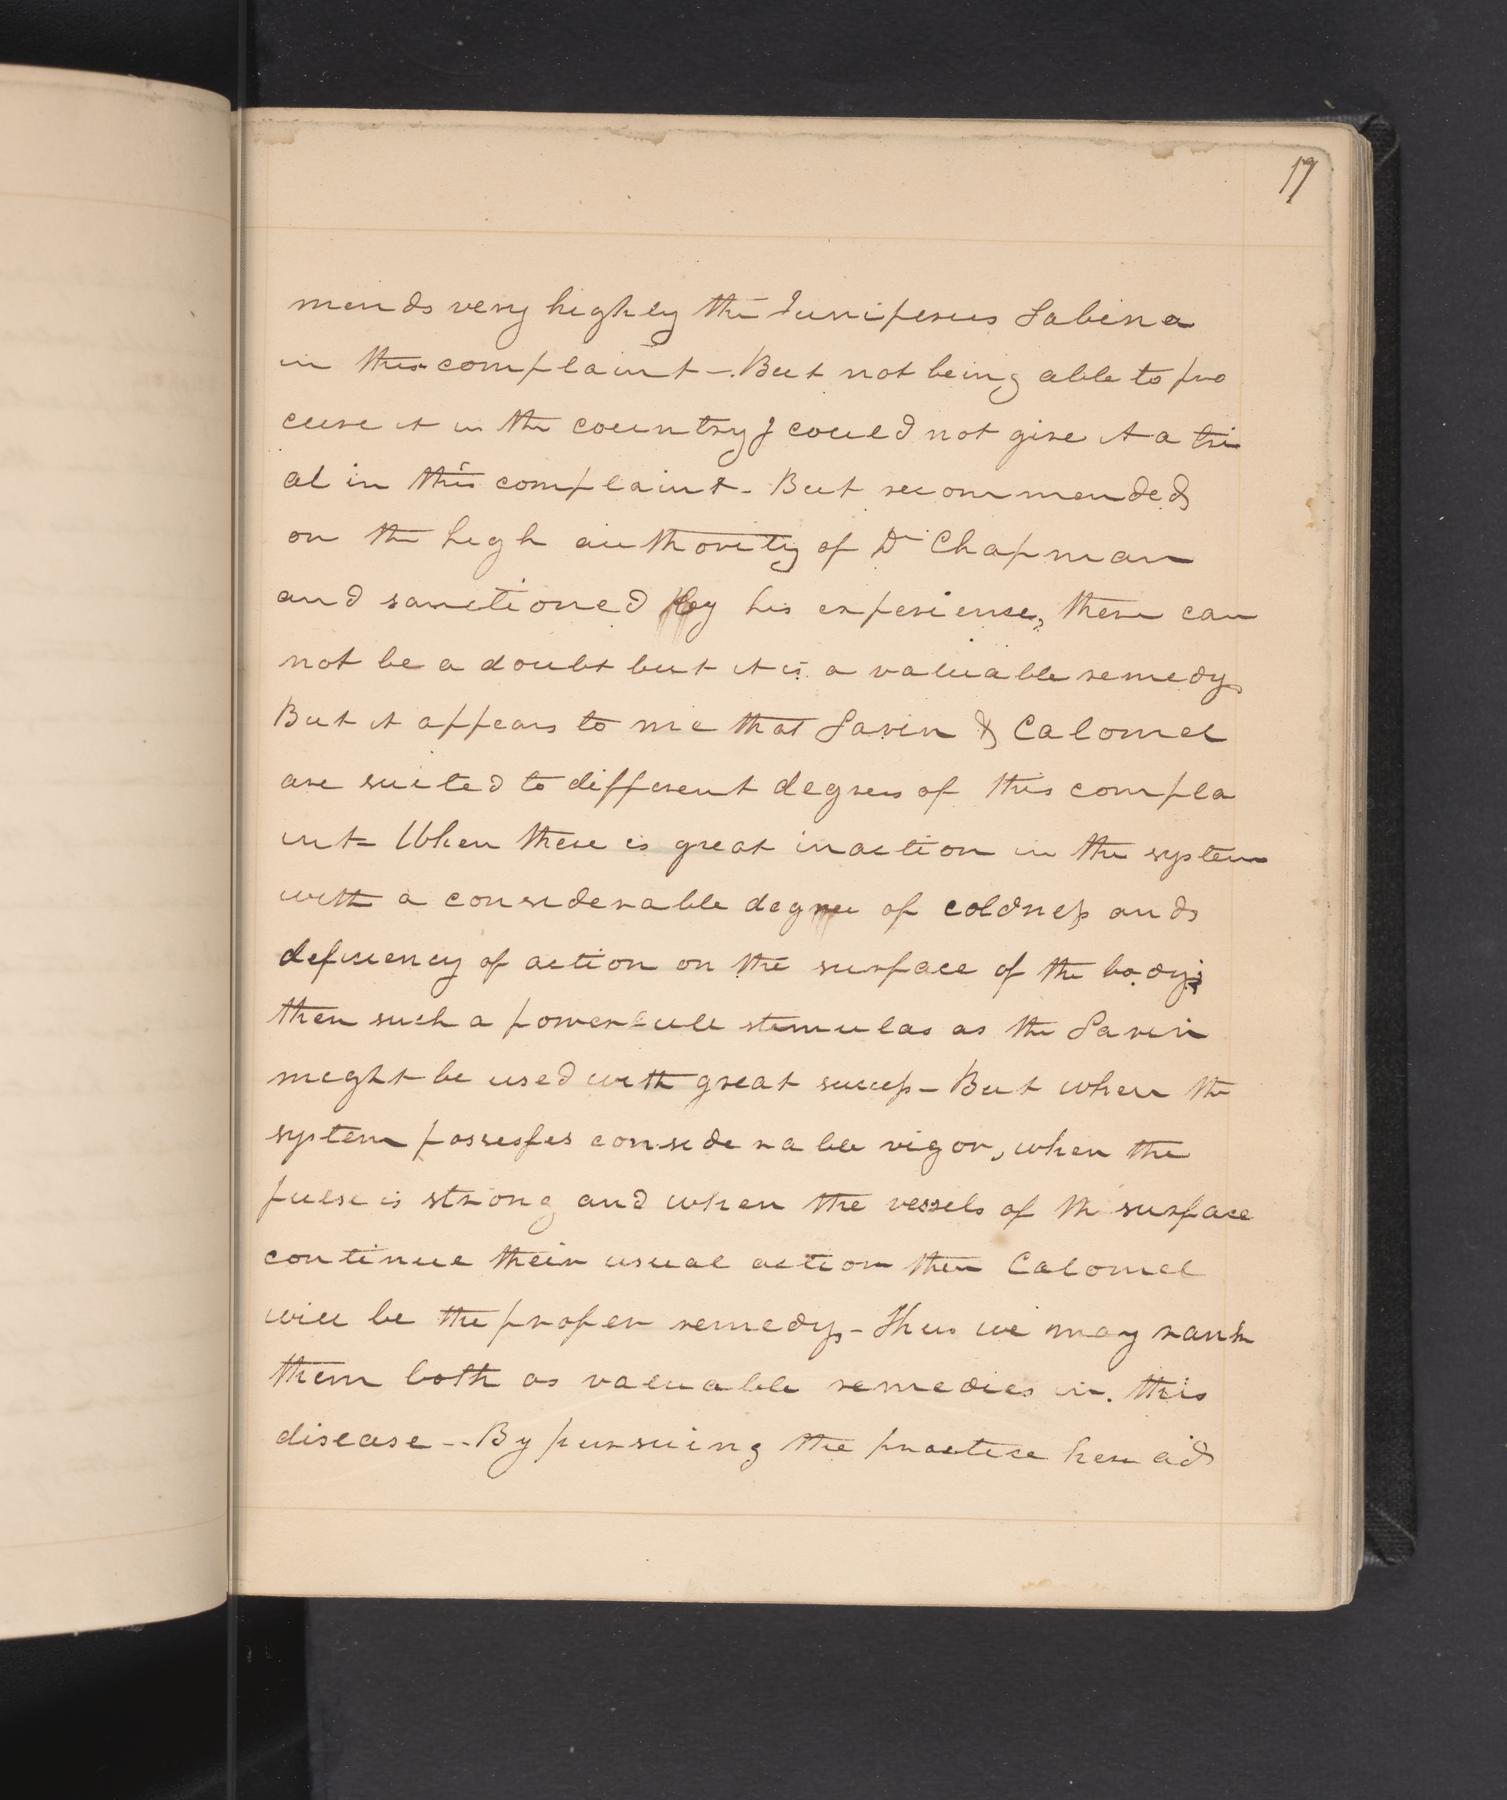 17
mends very highly the Juniperus Sabina
in this complaint -. But not being able to pro
cure it in the country I could not give it a tri
al in this complaint - But recommended
on the high authority of Dr Chapman
and sanctioned by his experience, there can
not be a doubt but it is a valuable remedy
But it appears to me that Savin & Calomel
are suited to different degrees of this compla
int= When there is great inaction in the system
with a considerable degree of coldness and
deficiency of action on the surface of the body;
then such a powerfull stimulas as the Savin
might be used with great success - But when the
system possesses considerable vigor, when the
pulse is strong and when the vessels of the surface
continue their usual action then Calomel
will be the proper remedy - Thus we may rank
them both as valuable remedies in this
disease -- By pursuing the practice here aid